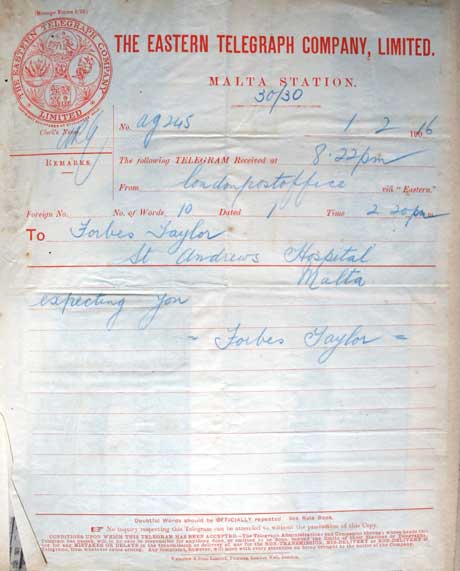 THE EASTERN TELEGRAPH COMPANY
LIMITED
THE EASTERN TELEGRAPH COMPANY, LIMITED.
MALTA STATION.
30/30
Clerk's Name.
No. ag245 1 2 1916
REMARKS.
The following TELEGRAM Received at 8.22pm
From londonpostoffice via "Eastern."
Foreign No. No. of Words 10 Dated 1 Time 2 20pm
To Forbes Taylor
St Andrews Hospital
Malta
expecting you
= Forbes Taylor =
Doubtful Words should be OFFICIALLY repeated. See Rule Book.
No inquiry respecting this Telegram can be attended to without the production of this Copy.
CONDITIONS UPON WHICH THIS TELEGRAM HAS BEEN ACCEPTED